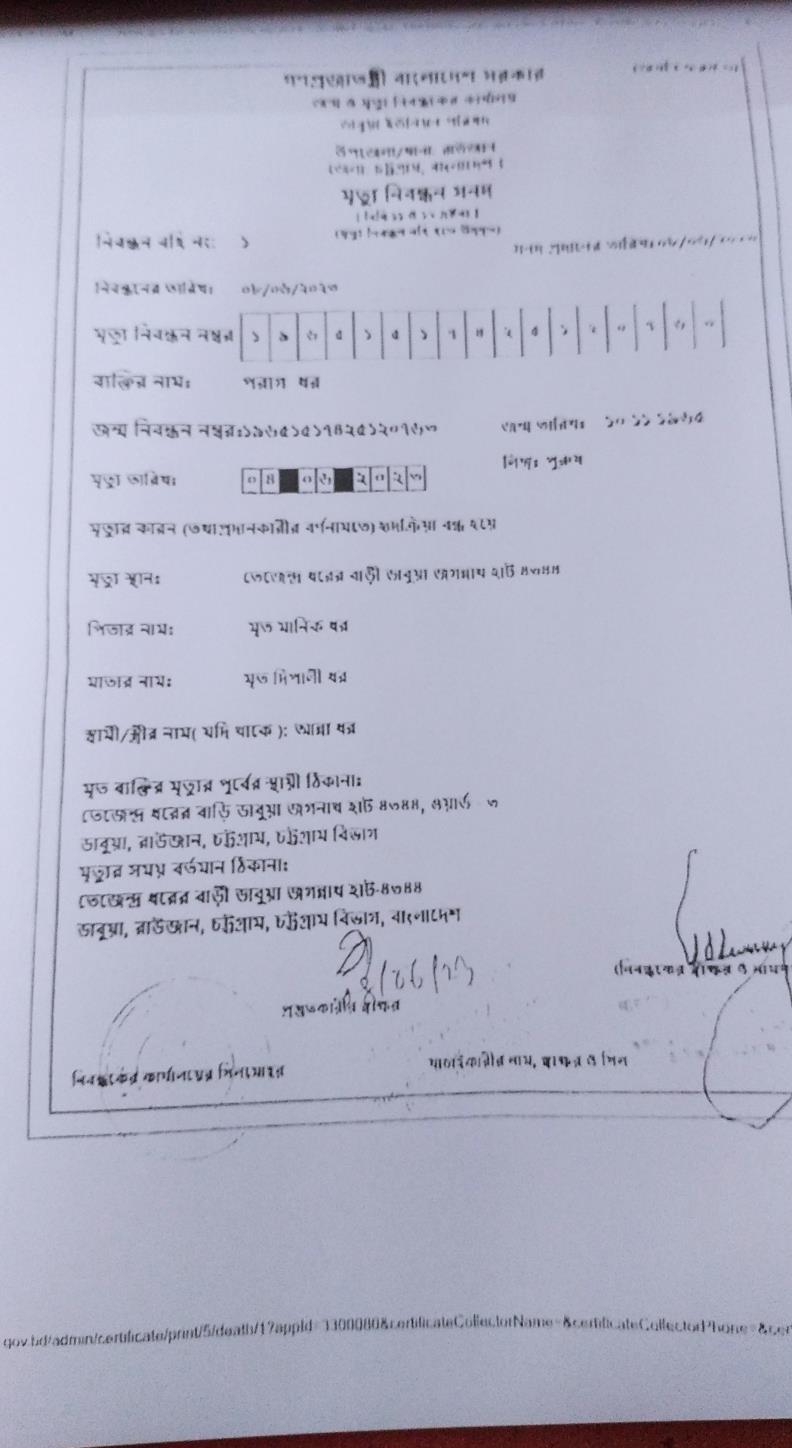 গণপ্রজাতন্ত্রী বাংলাদেশ সরকার
জন্ম ও মৃত্যু নিবন্ধকের কার্যালয়
ডাবুয়া ইউনিয়ন পরিষদ
উপজেলা/থানা: রাউজান
জেলা: চট্টগ্রাম, বাংলাদেশ।
মৃত্যু নিবন্ধন সনদ
(মৃত্যু নিবন্ধন বহি হতে উদ্ধৃত)
নিবন্ধন বহি নং: ১
সনদ প্রদানের তারিখঃ
নিবন্ধনের তারিখঃ ০৮/০৬/২০২৩
মৃত্যু নিবন্ধন নম্বর ১ ৯ ৬ ৫ ১ ৫ ১ ৭ ৪ ২ ৫ ১ ২ ০ ৭ ৬ ৩
ব্যক্তির নাম: পরাগ ধর
জন্ম নিবন্ধন নম্বর:১৯৬৫১৫১৭৪২৫১২০৭৬৩ জন্ম তারিখঃ ১০ ১১ ১৯৬৫
মৃত্যু তারিখঃ ০৪ ০৬ ২০২৩ লিঙ্গ: পুরুষ
মৃত্যুর কারন (তথ্যপ্রদানকারীর বর্ণনামতে) হৃদক্রিয়া বন্ধ হয়ে
মৃত্যু স্থান: তেজেন্দ্র ধরের বাড়ী ডাবুয়া জগন্নাথ হাট ৪৩৪৪
পিতার নাম: মৃত মানিক ধর
মাতার নাম: মৃত দিপালী ধর
স্বামী/স্ত্রীর নাম( যদি থাকে ): আন্না ধর
মৃত ব্যক্তির মৃত্যুর পূর্বের স্থায়ী ঠিকানা:
তেজেন্দ্র ধরের বাড়ি ডাবুয়া জগনাথ হাট ৪৩৪৪, ওয়ার্ড- ৩
ডাবুয়া, রাউজান, চট্টগ্রাম, চট্টগ্রাম বিভাগ
মৃত্যুর সময় বর্তমান ঠিকানা:
তেজেন্দ্র ধরের বাড়ী ডাবুয়া জগন্নাথ হাট-৪৩৪৪
ডাবুয়া, রাউজান, চট্টগ্রাম, চট্টগ্রাম বিভাগ, বাংলাদেশ
8/06/23
প্রস্তুতকারীর স্বাক্ষর
(নিবন্ধকের স্বাক্ষর ও নামসহ
নিবন্ধকের কার্যালয়ের সিলমোহর
যাচাইকারীর নাম, স্বাক্ষর ও সিল
gov.bd/admin/certificate/print/5/death/1?appId=3300080&certificateCollectorName=&certificateCollectorPhone=&cer